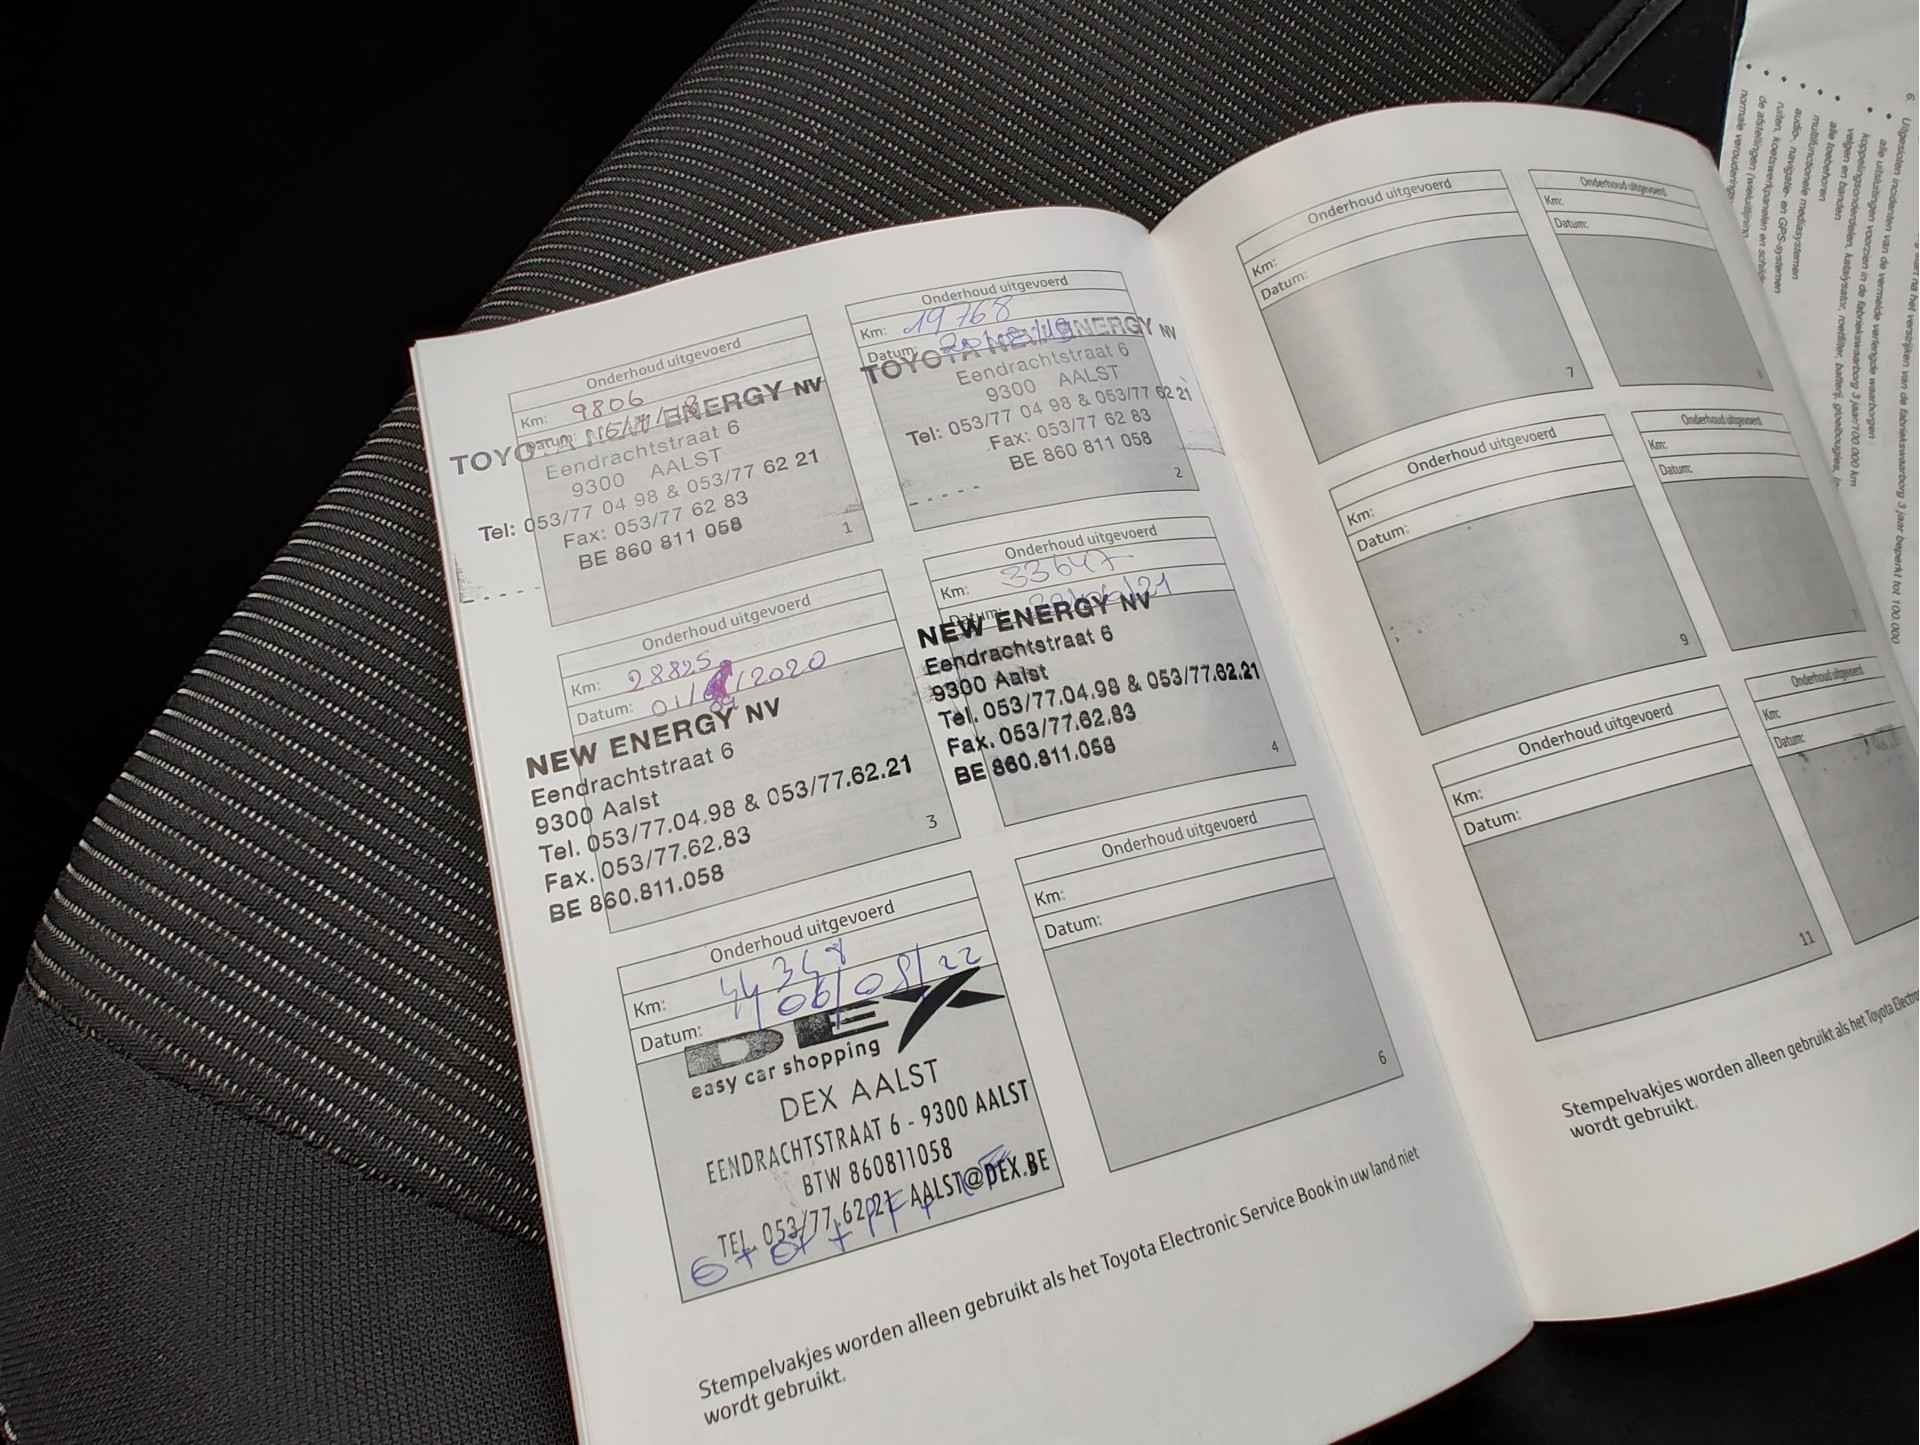 Onderhoud uitgevoerd
Km: 9806
Datum:
TOYOTA NEW ENERGY NV
Eendrachtstraat 6
9300 AALST
Tel: 053/77 04 98 & 053/77 62 21
Fax: 053/77 62 83
BE 860 811 058
1
Onderhoud uitgevoerd
Km: 19768
Datum:
TOYOTA NEW ENERGY NV
Eendrachtstraat 6
9300 AALST
Tel: 053/77 04 98 & 053/77 62 21
Fax: 053/77 62 83
BE 860 811 058
2
Onderhoud uitgevoerd
Km: 28825
Datum:
NEW ENERGY NV
Eendrachtstraat 6
9300 Aalst
Tel. 053/77.04.98 & 053/77.62.21
Fax. 053/77.62.83
BE 860.811.058
3
Onderhoud uitgevoerd
Km: 33647
Datum:
NEW ENERGY NV
Eendrachtstraat 6
9300 Aalst
Tel. 053/77.04.98 & 053/77.62.21
Fax. 053/77.62.83
BE 860.811.058
4
Onderhoud uitgevoerd
Km:
Datum: 06/08/22
DEX
easy car shopping
DEX AALST
EENDRACHTSTRAAT 6 - 9300 AALST
BTW 860811058
TEL. 053/77.62.21 AALST@DEX.BE
Onderhoud uitgevoerd
Km:
Datum:
6
Stempelvakjes worden alleen gebruikt als het Toyota Electronic Service Book in uw land niet
wordt gebruikt.
Onderhoud uitgevoerd
Km:
Datum:
7
Onderhoud uitgevoerd
Km:
Datum:
Onderhoud uitgevoerd
Km:
Datum:
9
Onderhoud uitgevoerd
Km:
Datum:
Onderhoud uitgevoerd
Km:
Datum:
11
Onderhoud uitgevoerd
Km:
Datum:
Stempelvakjes worden alleen gebruikt als het Toyota
wordt gebruikt.
6. Uitgesloten incidenten van de vermelde verlengde waarborgen
alle uitsluitingen voorzien in de fabriekswaarborg 3 jaar/100.000 km
koppelingsonderdelen, katalysator, roetfilter, batterij, gloeibougies,
velgen en banden
alle toebehoren
multifunctionele mediasystemen
audio-, navigatie- en GPS-systemen
ruiten, koetswerkpanelen en
de afstellingen
normale veroudering